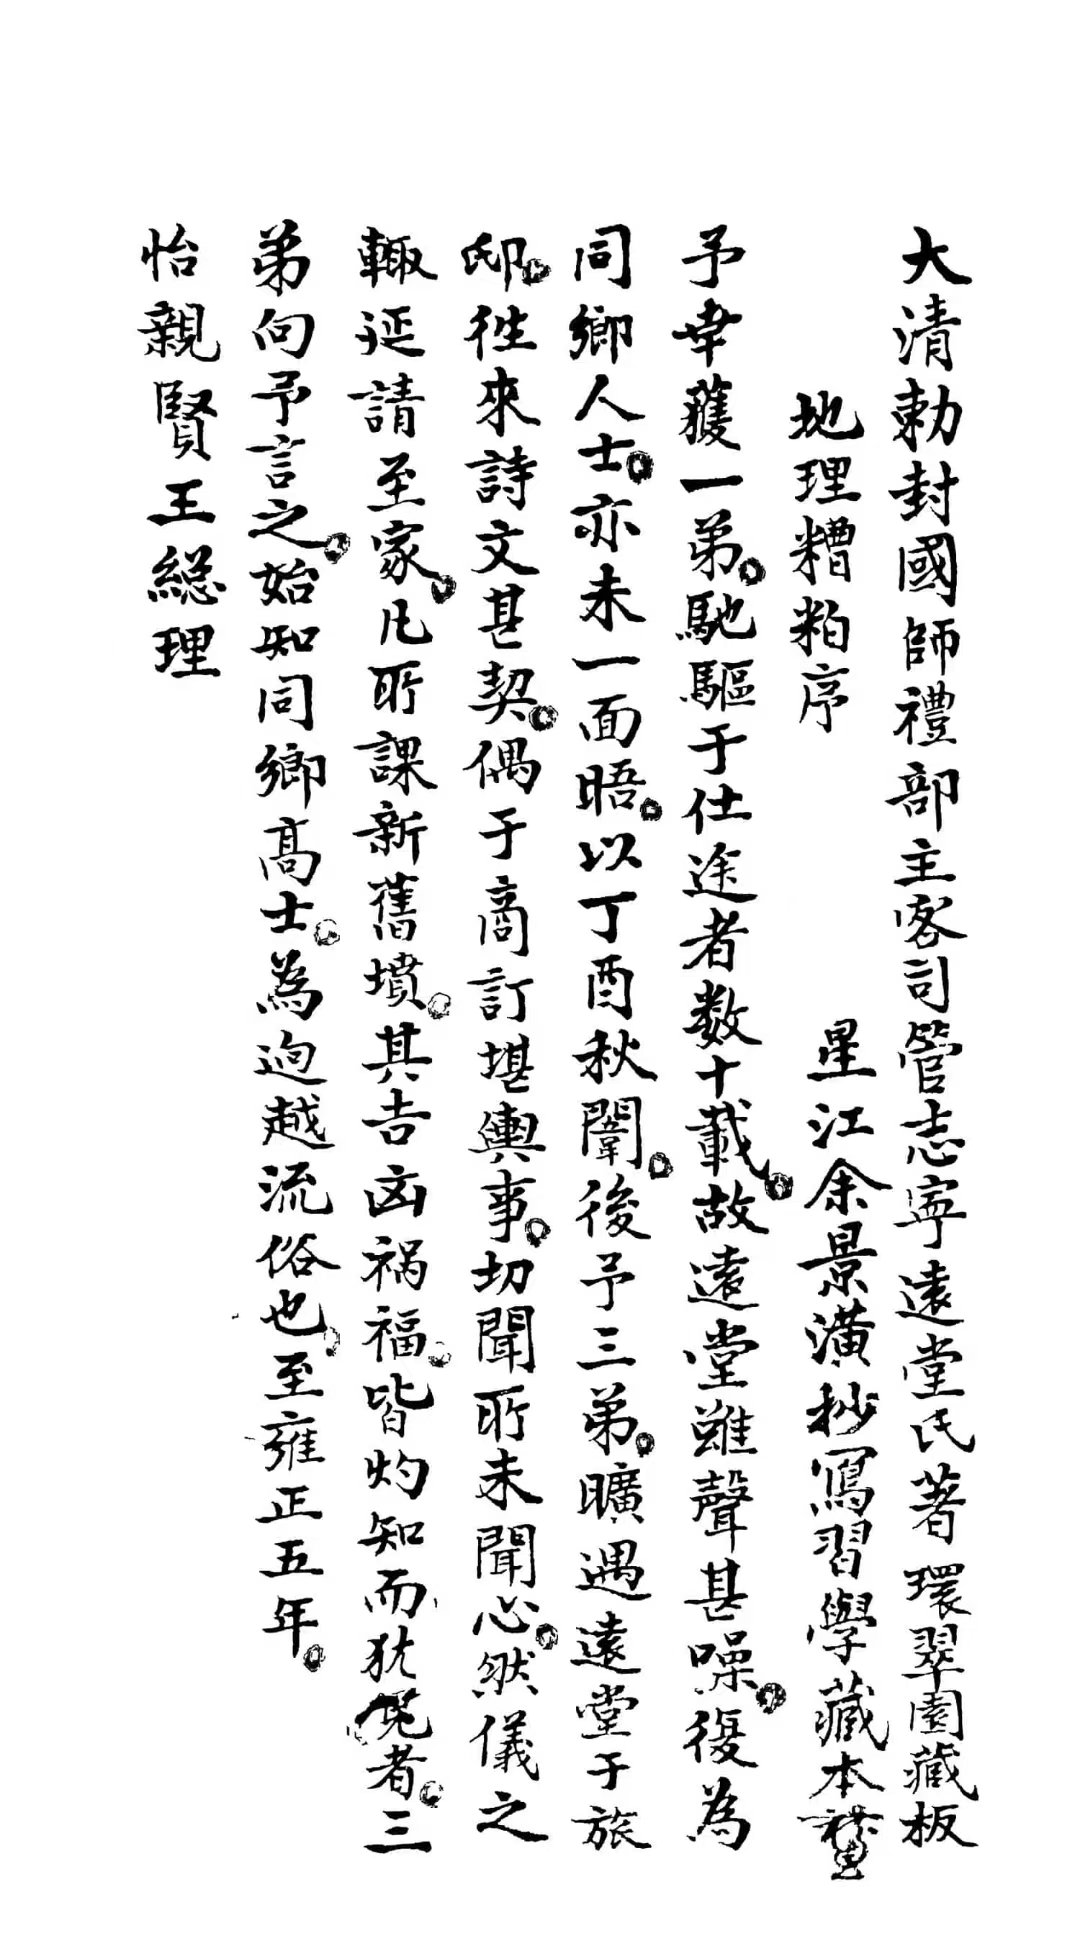 大清勅封國師禮部主客司管志寧遠堂氏著環翠園藏板
地理糟粕序
星江余景潢抄寫習學藏本
予幸獲一弟。馳驅于仕途者数十載。故遠堂雖聲甚噪。復為
同鄉人士。亦未一面晤。以丁酉秋闈。後予三弟。曠遇遠堂于旅
邸。徃來詩文甚契。偶于商訂堪輿事。切聞所未聞心。然儀之
輙延請至家。凡所課新舊墳。其吉凶祸福。皆灼知而犹覓者。三
弟向予言之。始知同鄉高士。為逈越流俗也。至雍正五年。
怡親賢王総理